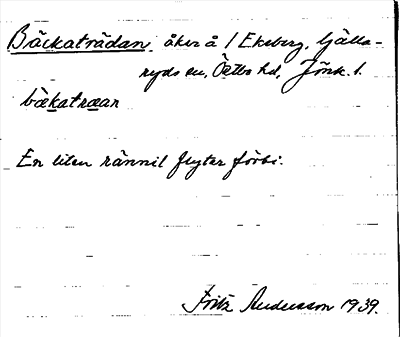 Bäckaträdan, åker å 1 Ekeberg, Gällaryds sn, Östbo hd, Jönk. l.
bäkatræan
En liten rännil flyter förbi.
Fritz Andersson 1939.